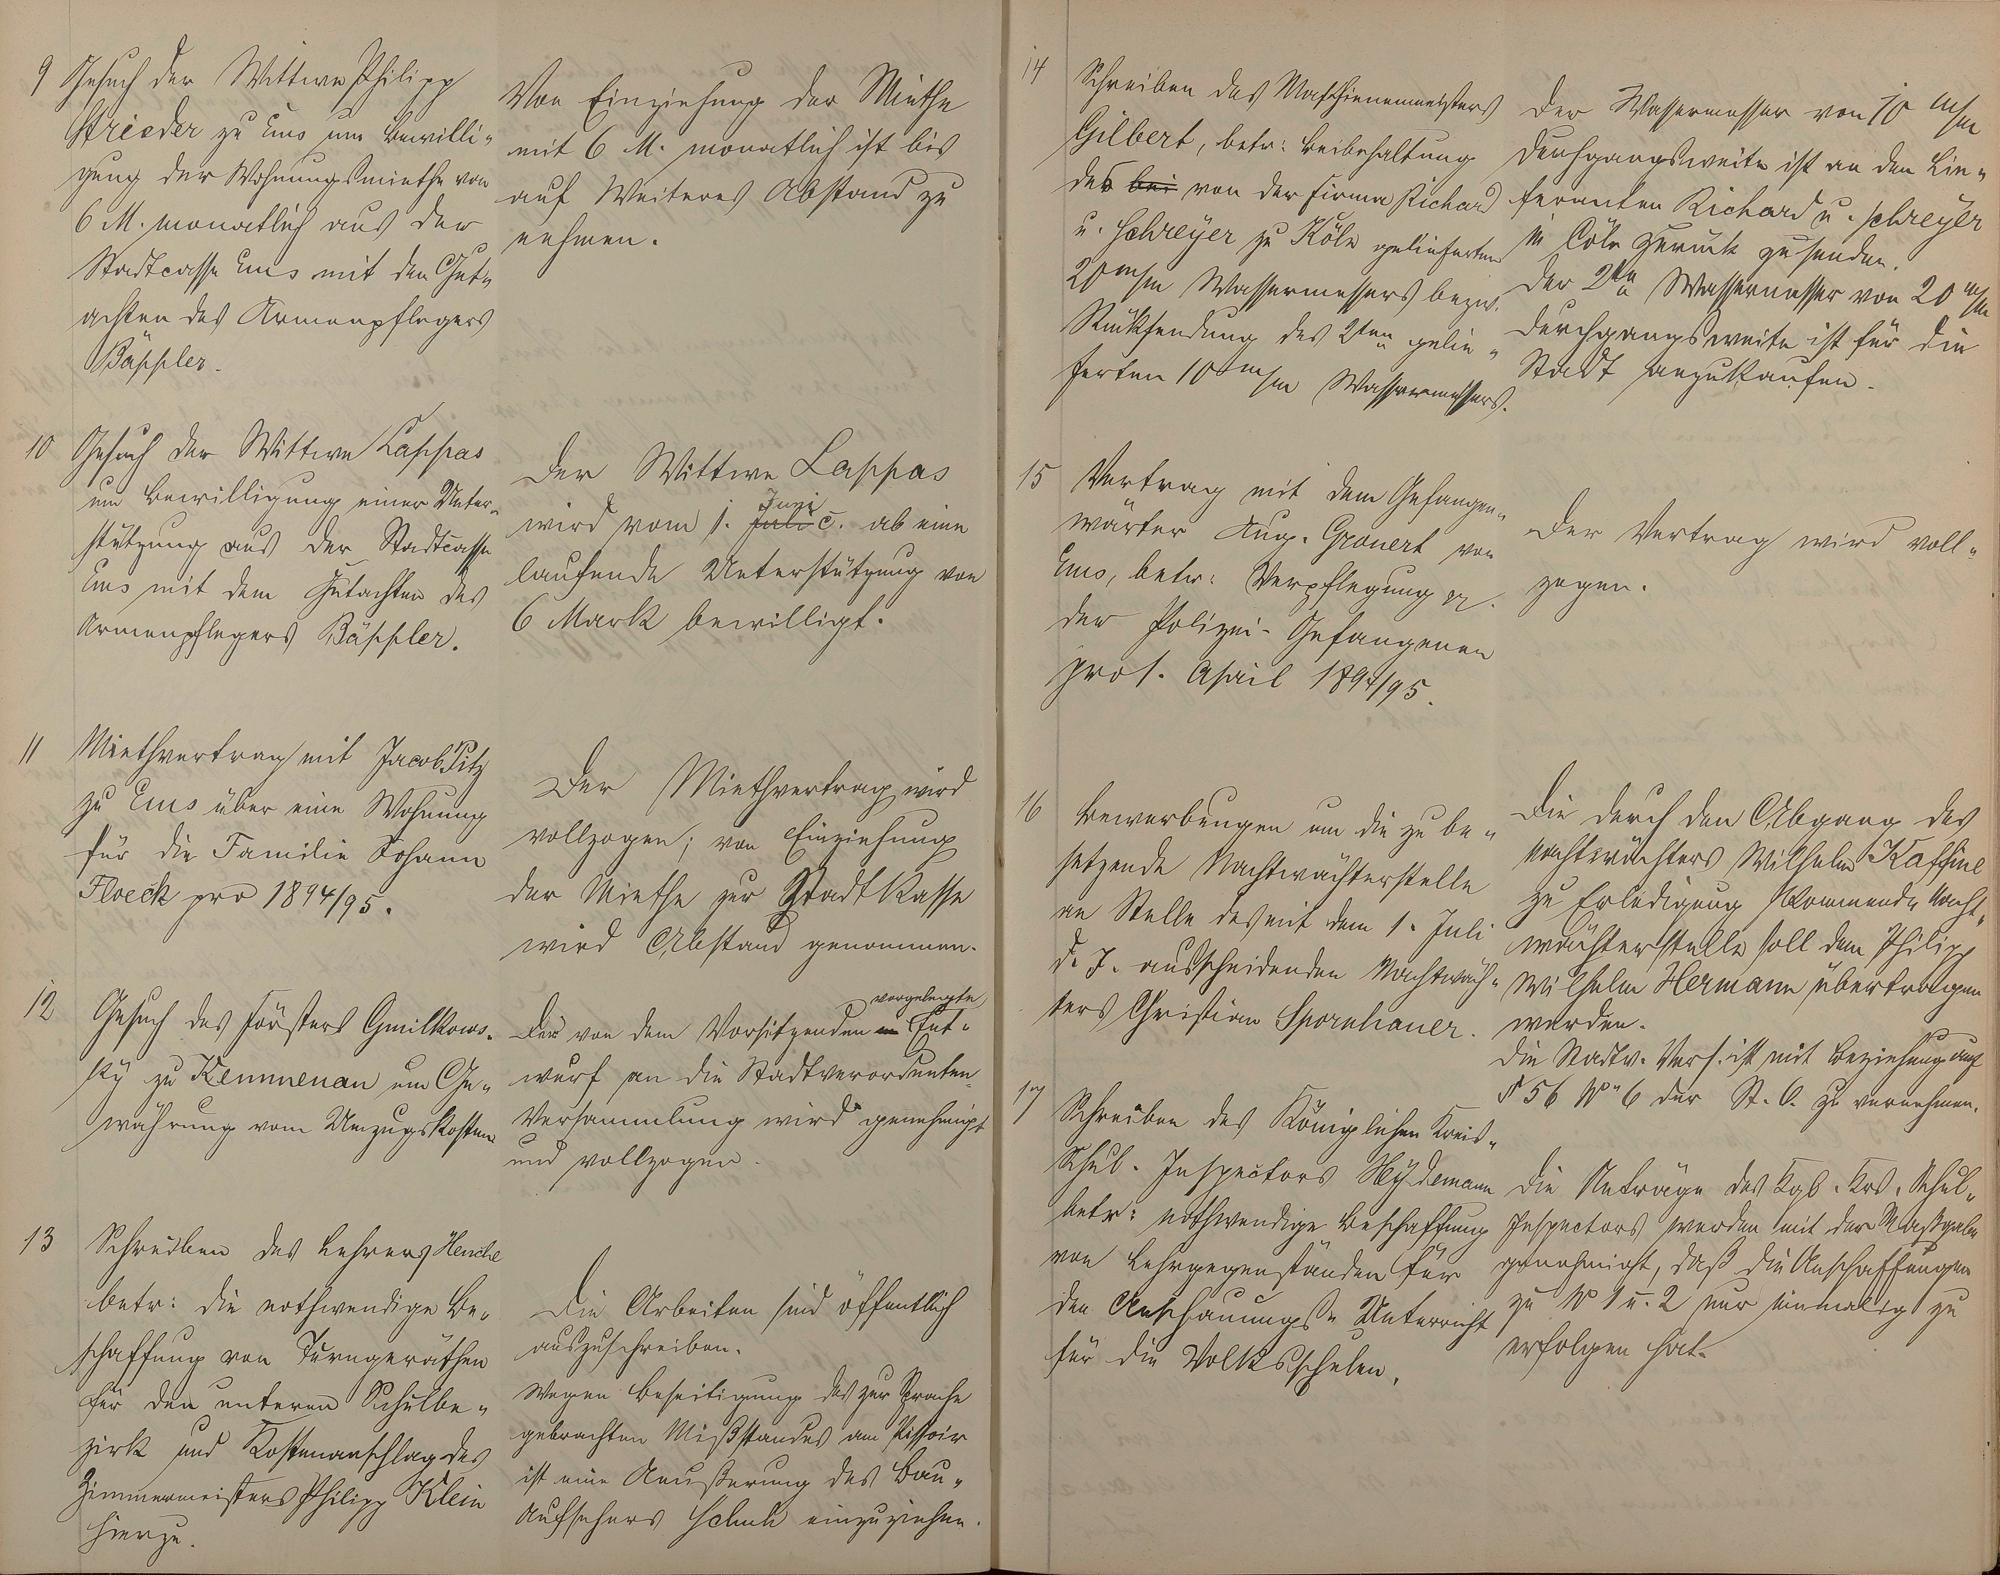 9 Gesuch der Wittwe Philipp
Strieder zu Ems um Bewilli-
gung der Wohnungsmiethe von
6 M. monatlich aus der
Stadtcasse Ems mit dem Gut-
achten des Armenpflegers
Bäppler.
Von Einziehung der Miethe
mit 6 M. monatlich ist bis
auf Weiteres Abstand zu
nehmen.
10 Gesuch der Wittwe Lappas
um Bewilligung einer Unter-
stützung aus der Stadtcasse
Ems mit dem Gutachten des
Armenpflegers Bäppler.
Der Wittwe Lappas
Juni
wird vom 1. Juli c. ab eine
laufende Unterstützung von
6 Mark bewilligt.
11 Miethvertrag mit Jacob Pitz
zu Ems über eine Wohnung
für die Familie Johann
Floeck pro 1894/95.
Der Miethvertrag wird
vollzogen; von Einziehung
der Miethe zur Stadtkasse
wird Abstand genommen.
12 Gesuch des Försters Gmilkows-
ky zu Kemmenau um Ge-
währung vom Umzugskosten
vorgelegte
Der von dem Vorsitzenden Ent-
wurf an die Stadtverordneten-
Versammlung wird genehmigt
und vollzogen.
13 Schreiben des Lehrers Henche
betr: die nothwendige Be-
schaffung von Turngeräthen
für den unteren Schulbe-
zirk und Kostenanschlag des
Zimmermeisters Philipp Klein
hierzu.
Die Arbeiten sind öffentlich
auszuschreiben.
Wegen Beseitigung des zur Sprache
gebrachten Mißstandes am Pissoir
ist eine Aeußerung des Bau-
aufsehers Schuh einzuziehen.
14 Schreiben des Maschienenmeisters
Gilbert, betr: Beibehaltung
des bei von der Firma Richard
u. Schreyer zu Köln gelieferten
20 m/m Wassermessers bezw.
Rücksendung des 2ten gelie-
ferten 10 m/m Wassermessers.
Der Wassermesser von 10 m/m
Durchgangsweite ist an den Lie-
feranten Richard u. Schreyer
in Cöln zurück zu senden.
Der 2te Wassermesser von 20 m/m
Durchgangsweite ist für die
Stadt anzukaufen.
15 Vertrag mit dem Gefangen-
wärter Aug. Gronert von
Ems, betr: Verpflegung pp.
der Polizei-Gefangenen
pro 1. April 1894/95.
Der Vertrag wird voll-
zogen.
16 Bewerbungen um die zu be-
setzende Nachtwächterstelle
an Stelle des mit dem 1. Juli
d. J. ausscheidenden Nachtwäch-
ters Christian Spornhauer.
Die durch den Abgang des
Nachtwächters Wilhelm Kaffine
zu Erledigung kommende Nacht-
wächterstelle soll dem Philipp
Wilhelm Hermann übertragen
werden.
Die Stadtv. Vers. ist mit Beziehung auf
§ 56 No 6 der St. O. zu vernehmen.
17 Schreiben des Königlichen Kreis-
Schul-Inspectors Heydemann
betr: nothwendige Beschaffung
von Lehrgegenständen für
den Anschauungs-Unterricht
für die Volksschulen.
Die Anträge des Kgl. Krs. Schul-
Inspectors werden mit der Maßgabe
genehmigt, daß die Anschaffungen
zu No 1 u. 2 nur einmalig zu
erfolgen hat.